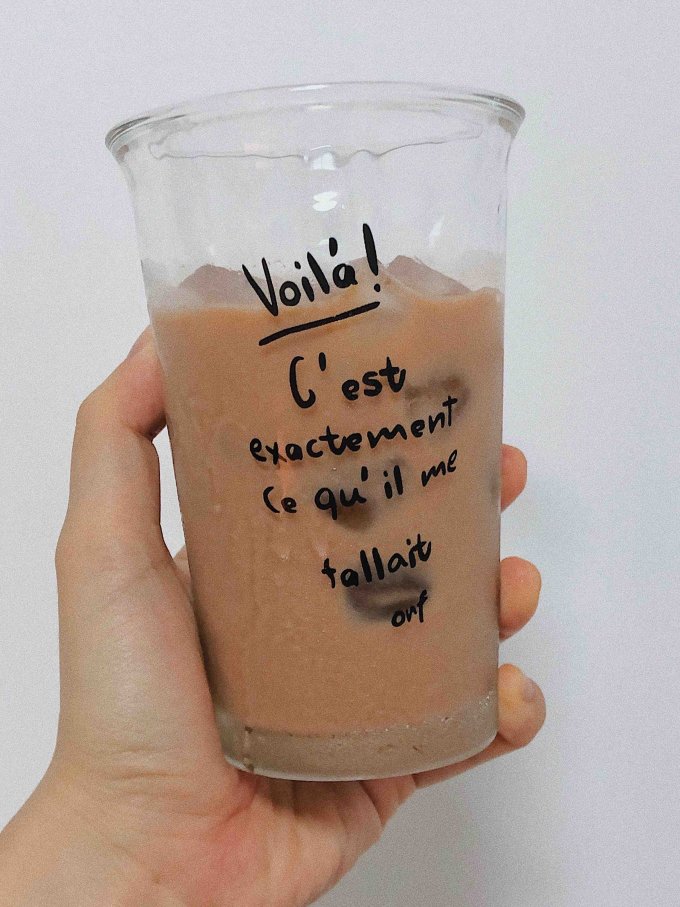 Voilà!
C'est
exactement
ce qu'il me
fallait
ouf